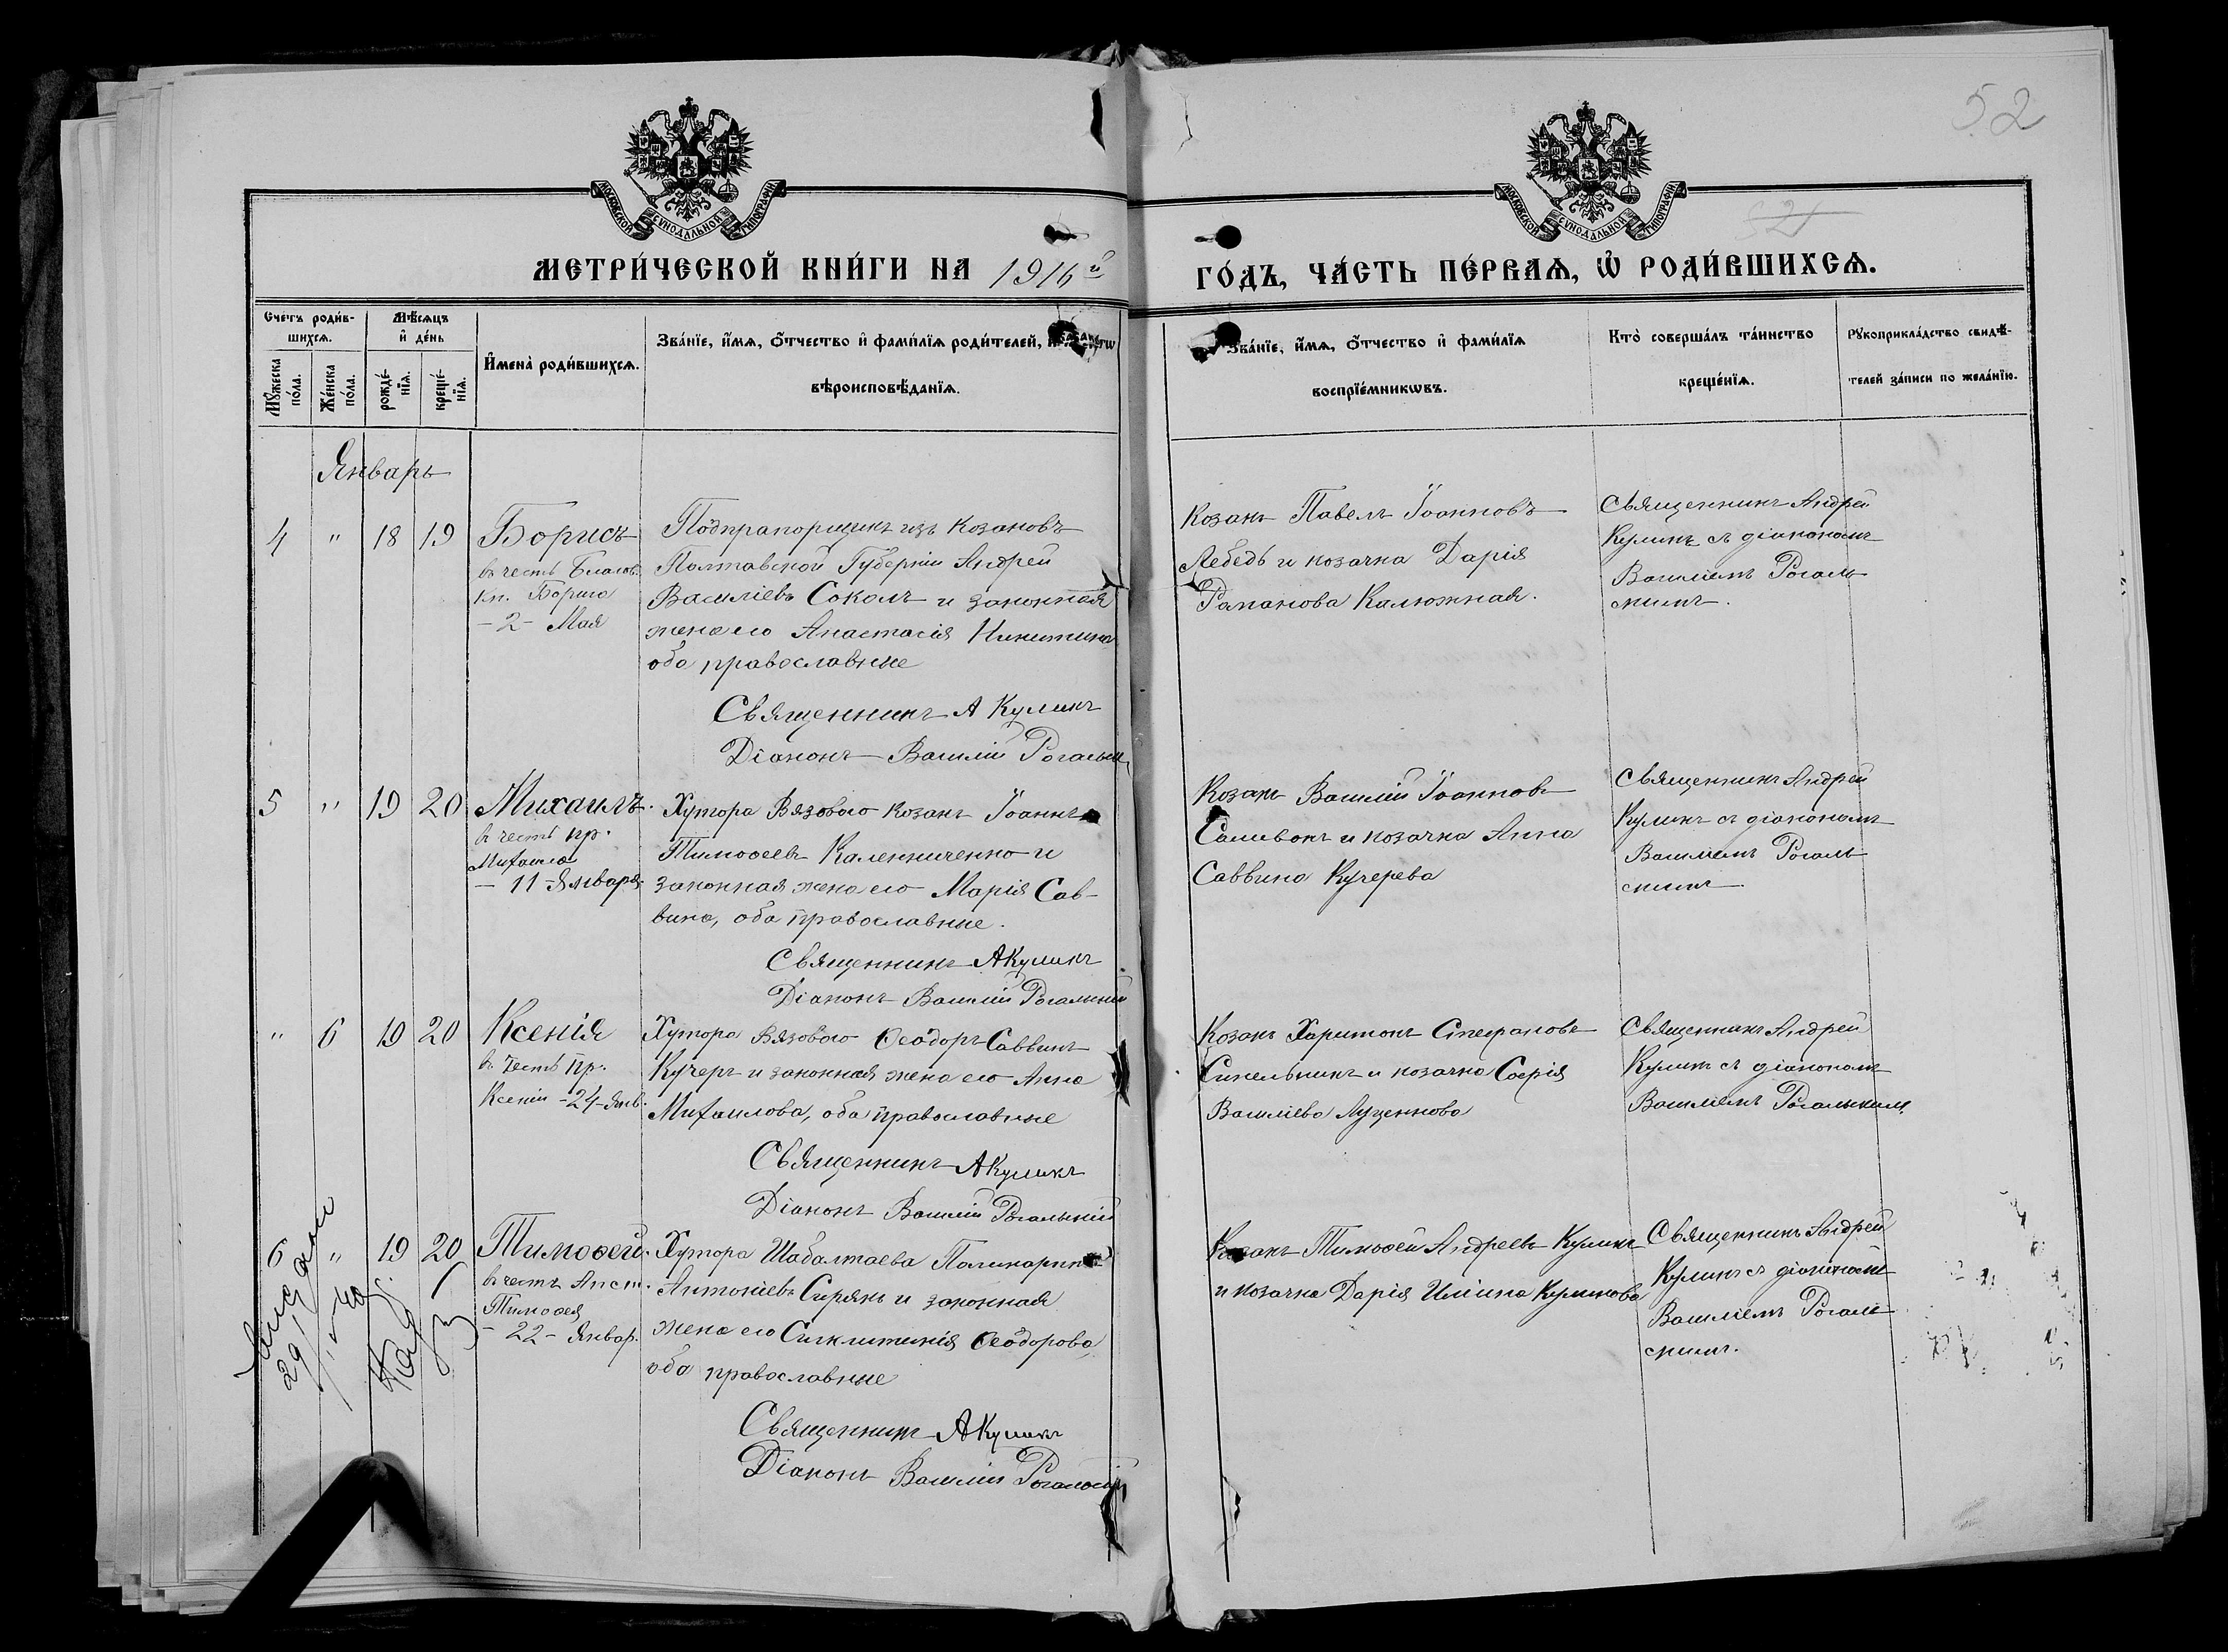 52
МОСКОВСКОЙ СѴНОДАЛЬНОЙ ТИПОГРАФІИ
МОСКОВСКОЙ СѴНОДАЛЬНОЙ ТИПОГРАФІИ
МЕТРИ́ЧЕСКОЙ КНИ́ГИ НА 1916й ГО́ДЪ, ЧА́СТЬ ПЕ́РВАѦ, Ѽ РОДИ́ВШИХСѦ.
Сче́тъ роди́в-
шихсѧ.
Мѣ́сѧцъ
и҆ де́нь
Мꙋ́жеска
по́ла.
Же́нска
по́ла.
рожде́-
нїѧ.
креще́-
нїѧ.
И҆мена̀ роди́вшихсѧ.
Зва́нїе, и҆́мѧ, ѻ҆́тчество и҆ фами́лїѧ роди́телей,
вѣроисповѣ́данїѧ.
Зва́нїе, и҆́мѧ, ѻ҆́тчество и҆ фами́лїѧ
воспрїе́мникѡвъ.
Кто̀ соверша́лъ та́инство
креще́нїѧ.
Рꙋкоприкла́дство свидѣ́-
телей за́писи по жела́нїю.
Январь
4 " 18 19 Борисъ
въ честь Благов.
кн. Бориса
- 2 - Мая
Подпрапорщикъ изъ козаковъ
Полтавской Губерніи Андрей
Василіевъ Соколъ и законная
жена его Анастасія Никитина
оба православные
Священникъ А Куликъ
Діаконъ Василій Рогальск
Козакъ Павелъ Іоанновъ
Лебедь и козачка Дарія
Калюжная.
Священникъ Андрей
Куликъ съ діакономъ
Василіемъ Рогаль
скимъ.
5 " 19 20 Михаилъ.
въ честь пр.
Михаила
- 11 - Января.
Хутора Вязового козакъ Іоаннъ
Тимоѳеевъ Каленниченко и
законная жена его Марія Сав-
вина, оба православные.
Священникъ А Куликъ
Діаконъ Василій Рогальскій
Козакъ Василій Іоанновъ
Саливонъ и козачка Анна
Саввина Кучерева
Священникъ Андрей
Куликъ съ діакономъ
Василіемъ Рогаль
скимъ
" 6 19 20 Ксенія
въ честь пр.
Ксеніи - 24 - Янв.
Хутора Вязового Ѳеодоръ Саввинъ
Кучеръ и законная жена его Анна
Михаилова, оба православные
Священникъ А Куликъ
Діаконъ Василій Рогальскій
Козакъ Харитонъ Стефановъ
Синельникъ и козачка Софія
Василіева Луценкова
Священникъ Андрей
Куликъ съ діакономъ
Василіемъ Рогальскимъ
6 " 19 20 Тимоѳей.
въ честь Апст.
Тимоѳея
- 22 - Январ.
Хутора Шабалтаева Поликарпъ
Антоніевъ Сирякъ и законная
жена его Сигклитикія Ѳеодорова,
оба православные
Священникъ А Куликъ
Діаконъ Василій Рогальскій
Козакъ Тимоѳей Андреевъ Куликъ
и козачка Дарія Иліина Куликова
Священникъ Андрей
Куликъ съ діакономъ
Василіемъ Рогаль
скимъ.